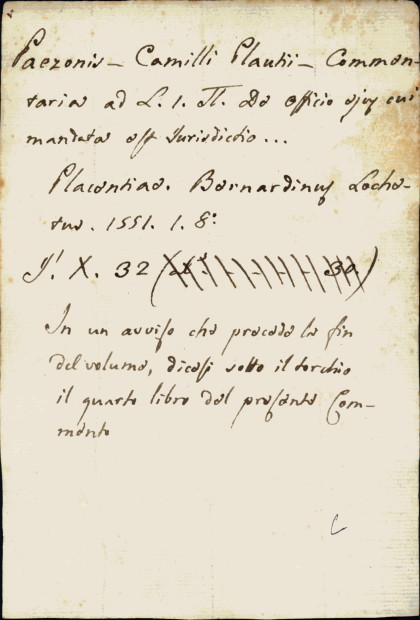 Paezonis - Camilli Plautii - Commen-
taria ad L. 1. π. De officio ejus cui
mandata est Jurisdictio...
Placentiae. Bernardinus Locha-
tus. 1551. 1. 8.º
X. 32 ( 30)
In un avviso che precede la fin
del volume, dicesi sotto il torchio
il quarto libro del presente Com-
mento